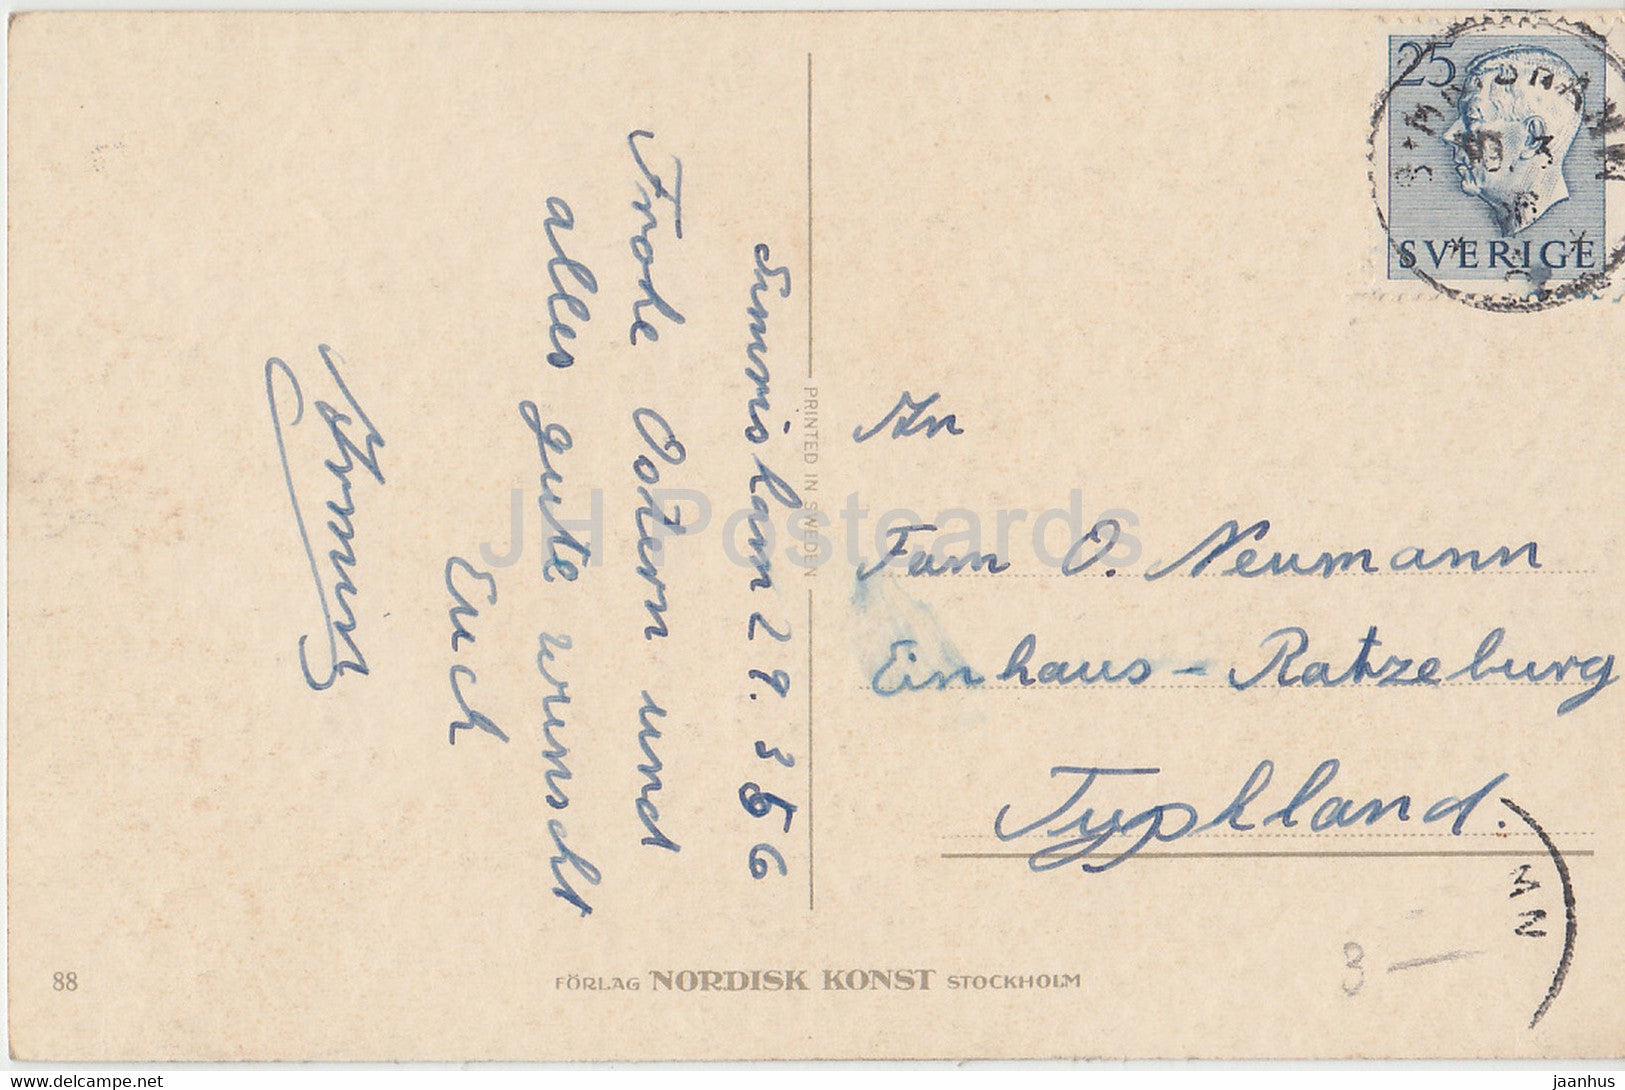 Simrishamn 29. 3 56
Frohe Ostern und
alles gute wünscht
Euch
PRINTED IN SWEDEN
25
SVERIGE
An
Fam O. Neumann
Einhaus - Ratzeburg
Tyskland.
MN
3 -
88
FÖRLAG NORDISK KONST STOCKHOLM
JH Postcards
www.delcampe.net
jaanhus